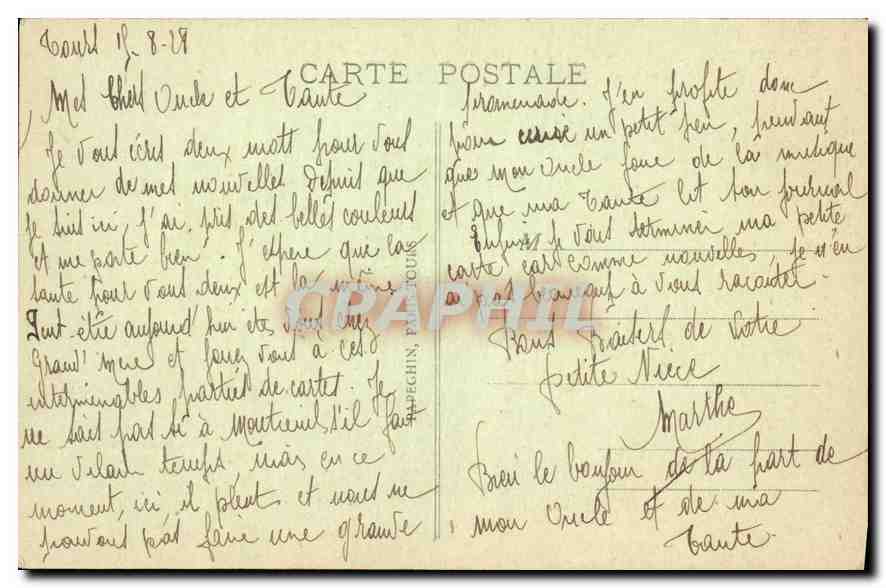 Tours 15-8-28
CARTE POSTALE
Mes Chers Oncle et Tante
Je vous écris deux mots pour vous
donner de mes nouvelles. Depuis que
je suis ici, j'ai pris des belles couleurs
et me porte bien. J'espère que la
santé pour vous deux est la même.
Peut-être aujourd'hui êtes vous chez
Grand' mère et jouez vous à ces
interminables parties de cartes. Je
ne sais pas si à Montreuil s'il fait
un vilain temps, mais en ce
moment, ici, il pleut et nous ne
pouvons pas faire une grande
promenade. J'en profite donc
pour un petit peu, pendant
que mon Oncle joue de la musique
et que ma Tante lit son journal
Enfin je vais terminer ma petite
carte car comme nouvelles, je n'en
ai pas beaucoup à vous raconter.
Bons Baisers de Votre
petite Nièce
Marthe
Bien le bonjour de la part de
mon Oncle et de ma
Tante.
PAPEGHIN, PARIS-TOURS
CPAPHIL